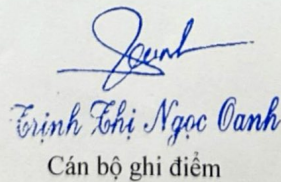 Trịnh Thị Ngọc Oanh
Cán bộ ghi điểm